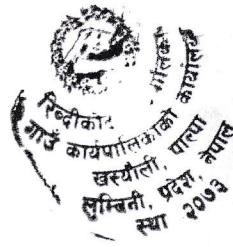 रिब्दीकोट
गाउँ कार्यपालिकाको कार्यालय
खस्यौली, पाल्पा
लुम्बिनी, प्रदेश, नेपाल
स्था २०७३